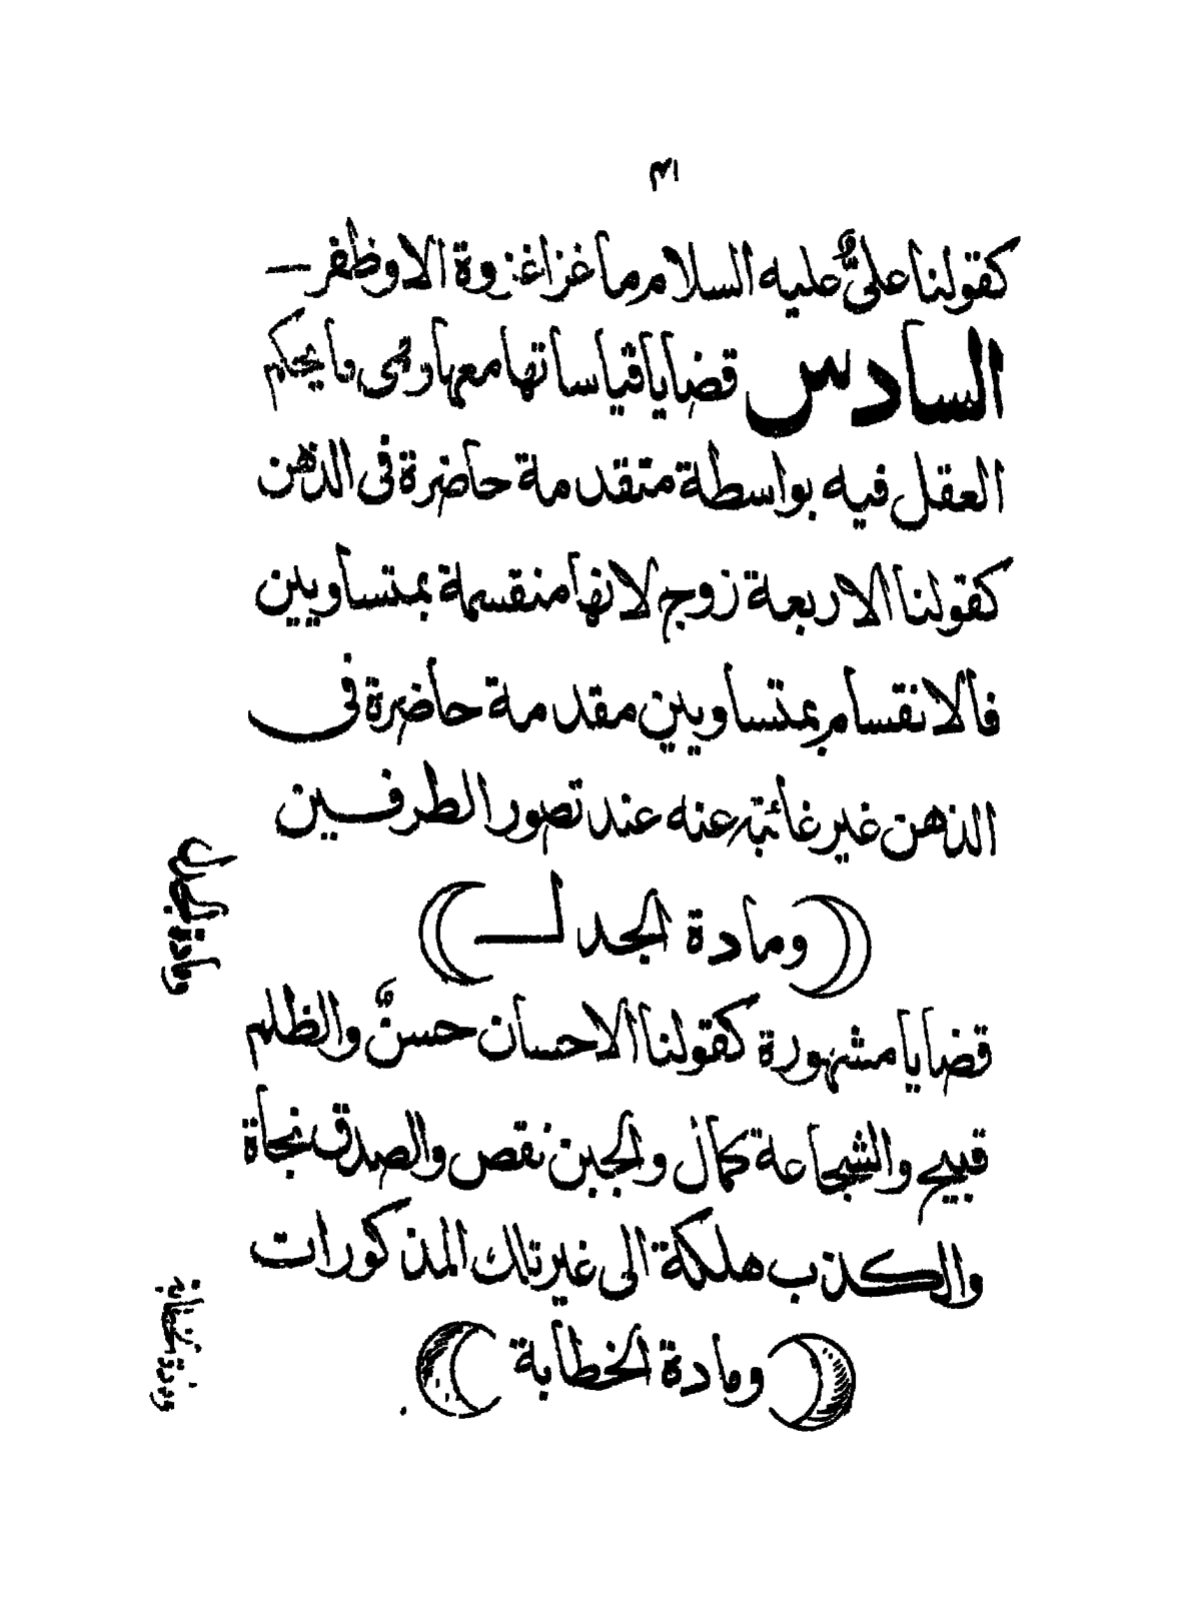 كقولنا علىٌّ عليه السلام ما غزا غزوة الا وظفر —
السادس قضايا قياساتها معها وهى ما يحكم
العقل فيه بواسطة متقدمة حاضرة فى الذهن
كقولنا الاربعة زوج لانها منقسمة بمتساويين
فالانقسام بمتساويين مقدمة حاضرة فى
الذهن غير غائبة عنه عند تصور الطرفين
(ومادة الجدل)
قضايا مشهورة كقولنا الاحسان حسنٌ والظلم
قبيح والشجاعة كمال والجبن نقص والصدق نجاة
والكذب هلكة الى غير تلك المذكورات
(ومادة الخطابة)
ومادة الجدل